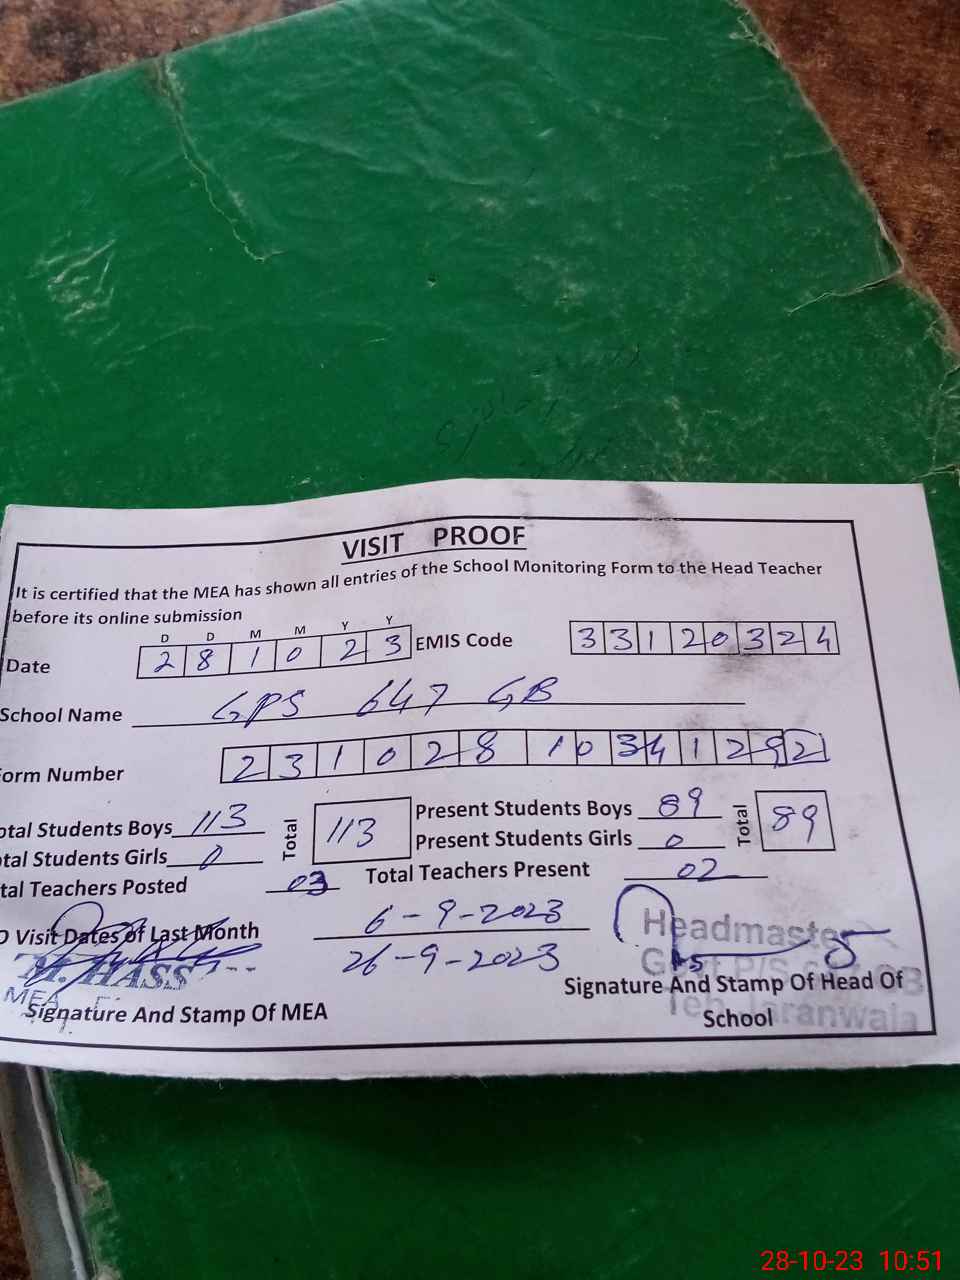 VISIT PROOF
It is certified that the MEA has shown all entries of the School Monitoring Form to the Head Teacher
before its online submission
D D M M Y Y
Date 2 8 1 0 2 3 EMIS Code 3 3 1 2 0 3 2 4
School Name GPS 647 GB
orm Number 2 3 1 0 2 8 1 0 3 4 1 2 9 2
otal Students Boys 113 Total 113 Present Students Boys 89 Total 89
tal Students Girls 0 Present Students Girls 0
tal Teachers Posted 03 Total Teachers Present 02
O Visit Dates of Last Month 6-9-2023
26-9-2023
M. HASS
MEA
Signature And Stamp Of MEA
Headmaster
Govt P/S 647 GB
Teh Jaranwala
Signature And Stamp Of Head Of
School
28-10-23 10:51